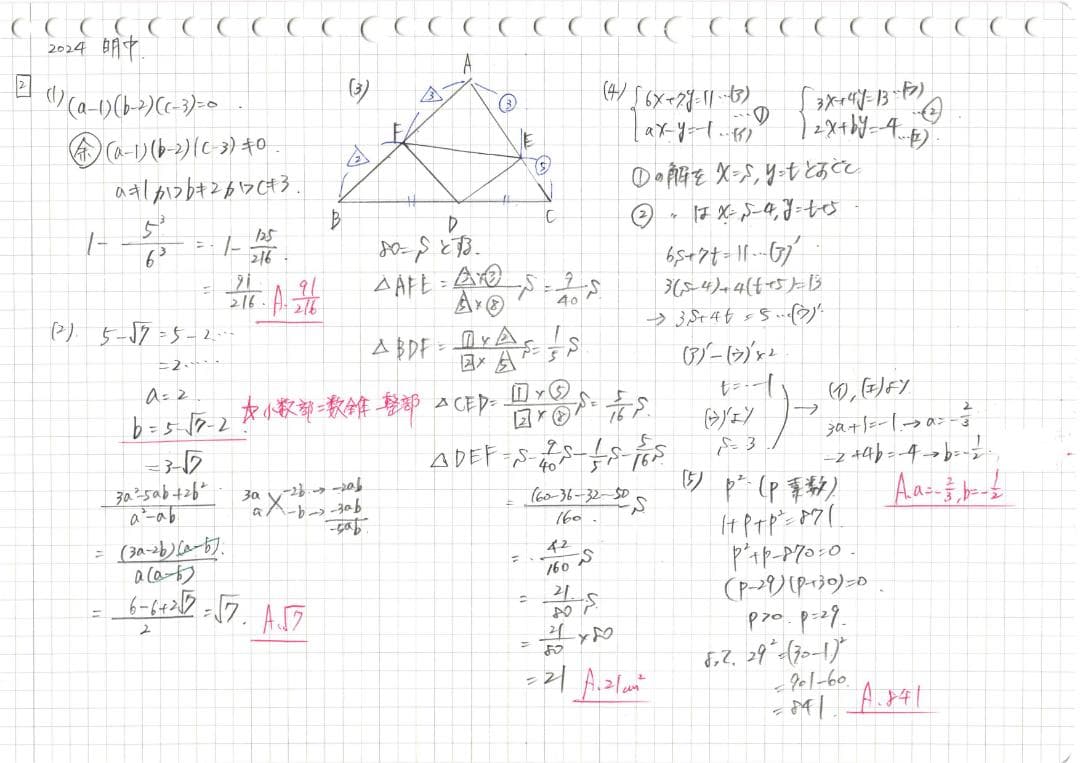 2024 明中
2
(1) (a-1)(b-2)(c-3)=0.
余 (a-1)(b-2)(c-3)≠0.
a≠1かつb≠2かつc≠3.
1- 5³/6³ = 1- 125/216
= 91/216. A. 91/216
(2). 5-√7=5-2.…
=2.…
a=2.
b=5-√7-2
☆小数部=数全体-整部
=3-√7
(3a²-5ab+2b²)/(a²-ab)
3a -2b → -2ab
a -b → -3ab
-5ab
= (3a-2b)(a-b)/a(a-b)
= (6-6+2√7)/2 = √7. A.√7
(3)
A
3 3
F E
2 5
B D C
80=Sとする.
△AFE = (3×3)/(5×8) S = 9/40 S
△BDF = (1×2)/(2×5) S = 1/5 S
△CED = (1×5)/(2×8) S = 5/16 S
△DEF = S- 9/40 S- 1/5 S- 5/16 S
= (160-36-32-50)/160 S
= 42/160 S
= 21/80 S
= 21/80 ×80
=21 A.21cm²
(4) {6x+7y=11…(ア) ax-y=-1…(イ) ① {3x+4y=13…(ウ) 2x+by=-4…(エ) ②
①の解を x=s, y=tとおくと
② 〃 は x=s-4, y=t+5
6s+7t=11…(ア)'
3(s-4)+4(t+5)=13
→3s+4t=5…(ウ)'
(ア)'-(ウ)'×2
t=-1
(ウ)'より
s=3
→ (イ),(エ)より
3a+1=-1→a=-2/3
-2+4b=-4→b=-1/2
A.a=-2/3, b=-1/2
(5) p² (p素数)
1+p+p²=871
p²+p-870=0.
(p-29)(p+30)=0
p>0. p=29.
よって 29²=(30-1)²
=901-60.
=841. A.841